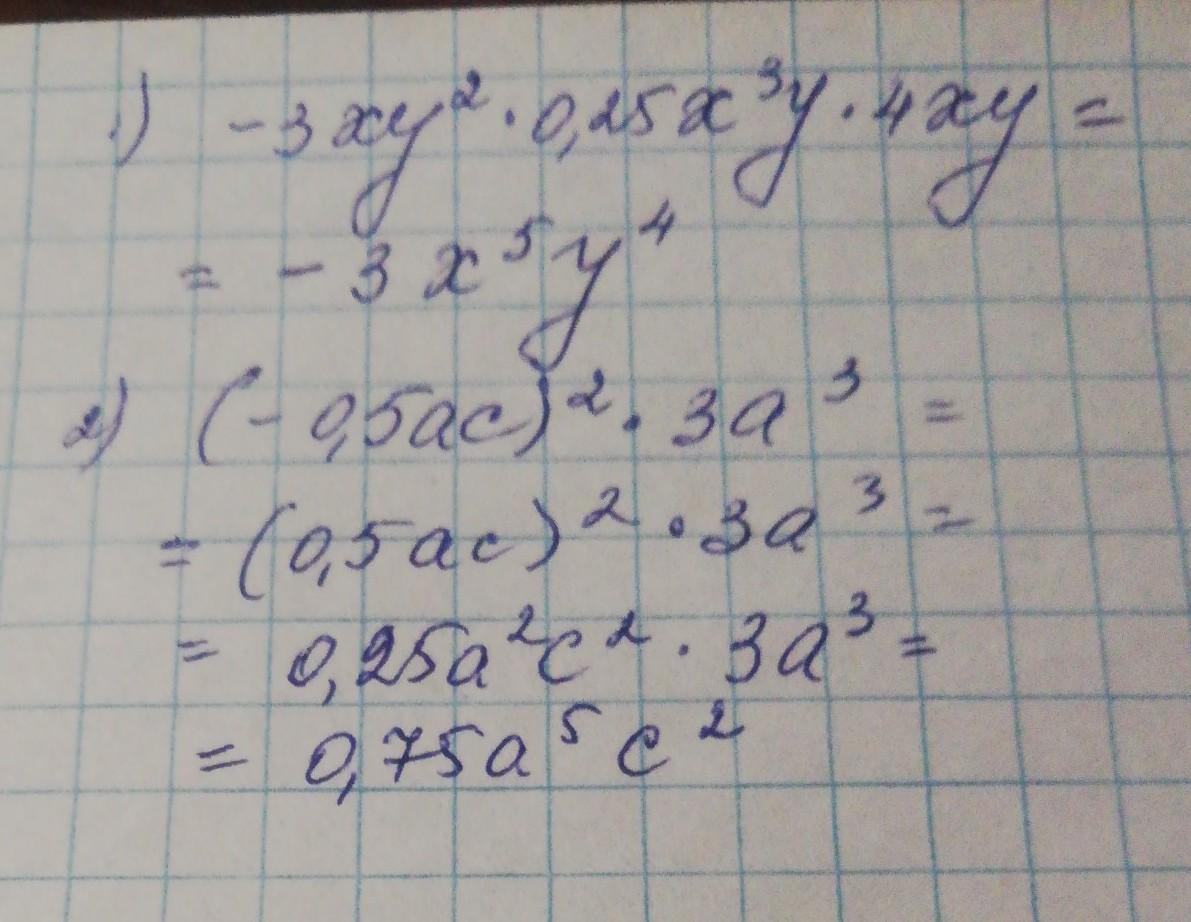 1) -3xy² · 0,25x³y · 4xy =
= -3x⁵y⁴
2) (-0,5ac)² · 3a³ =
= (0,5ac)² · 3a³ =
= 0,25a²c² · 3a³ =
= 0,75a⁵c²